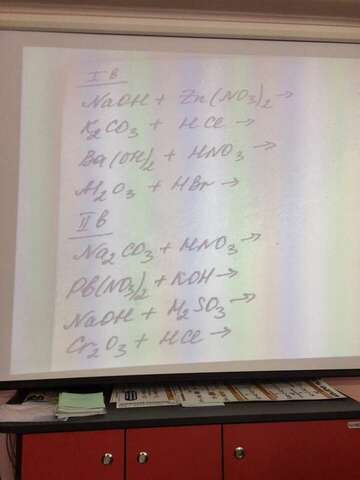 I в
NaOH + Zn(NO₃)₂ →
K₂CO₃ + HCl →
Ba(OH)₂ + HNO₃ →
Al₂O₃ + HBr →
II в
Na₂CO₃ + HNO₃ →
Pb(NO₃)₂ + KOH →
NaOH + H₂SO₃ →
Cr₂O₃ + HCl →